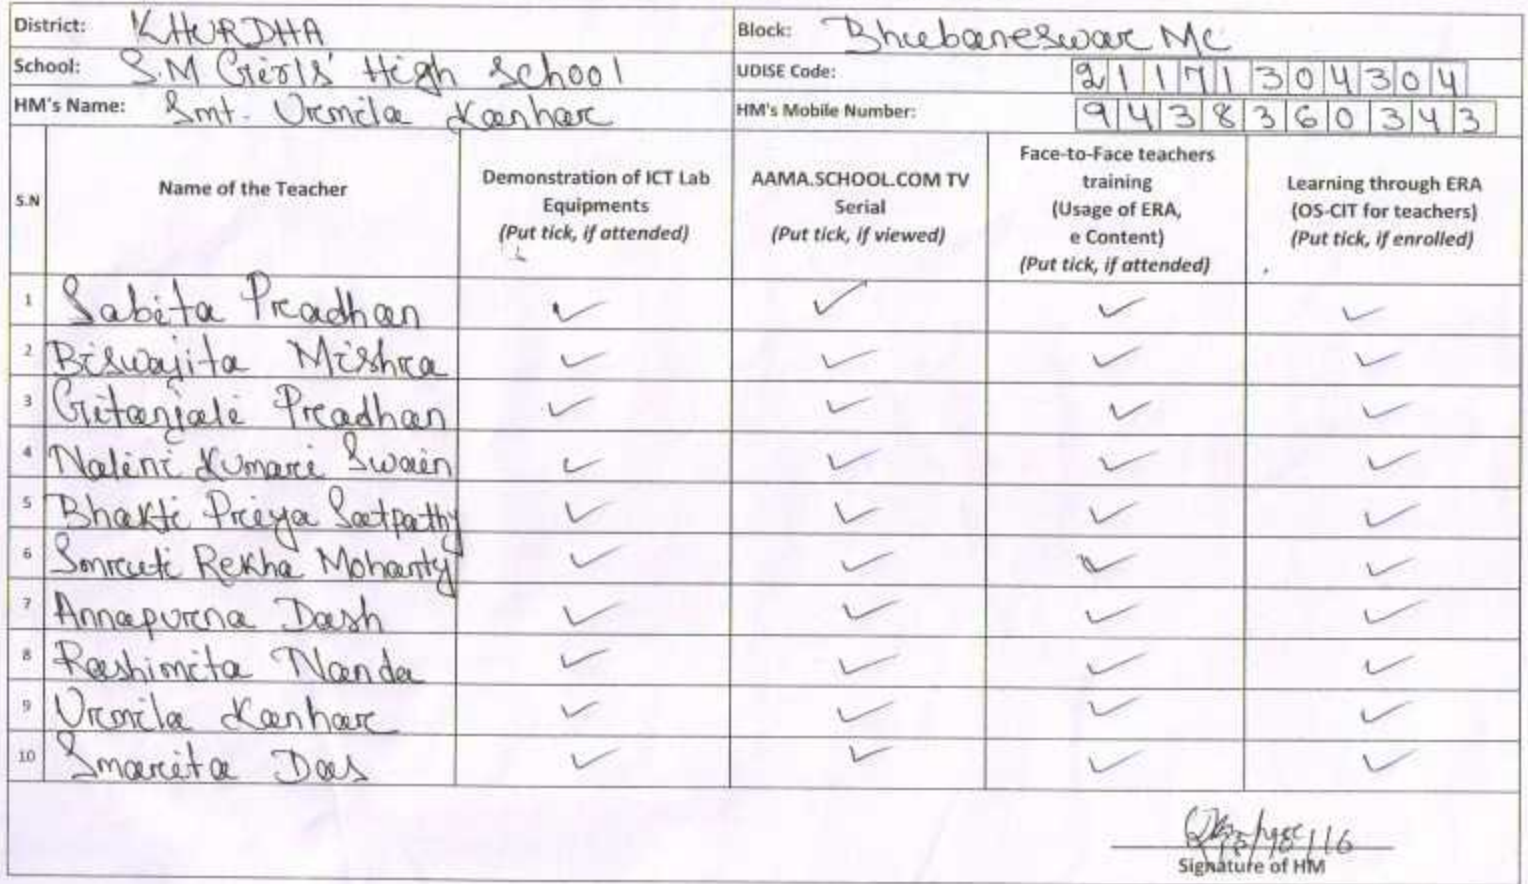 District: KHURDHA Block: Bhubaneswar MC
School: S.M Girls' High School UDISE Code: 21171304304
HM's Name: Smt. Urmila Kanhar HM's Mobile Number: 9438360343
S.N Name of the Teacher Demonstration of ICT Lab Equipments (Put tick, if attended) AAMA.SCHOOL.COM TV Serial (Put tick, if viewed) Face-to-Face teachers training (Usage of ERA, e Content) (Put tick, if attended) Learning through ERA (OS-CIT for teachers) (Put tick, if enrolled)
1 Sabita Pradhan ✓ ✓ ✓ ✓
2 Biswajita Mishra ✓ ✓ ✓ ✓
3 Gitanjali Pradhan ✓ ✓ ✓ ✓
4 Nalini Kumari Swain ✓ ✓ ✓ ✓
5 Bhakti Priya Satpathy ✓ ✓ ✓ ✓
6 Smruti Rekha Mohanty ✓ ✓ ✓ ✓
7 Annapurna Dash ✓ ✓ ✓ ✓
8 Rashmita Nanda ✓ ✓ ✓ ✓
9 Urmila Kanhar ✓ ✓ ✓ ✓
10 Smarita Das ✓ ✓ ✓ ✓
Signature of HM